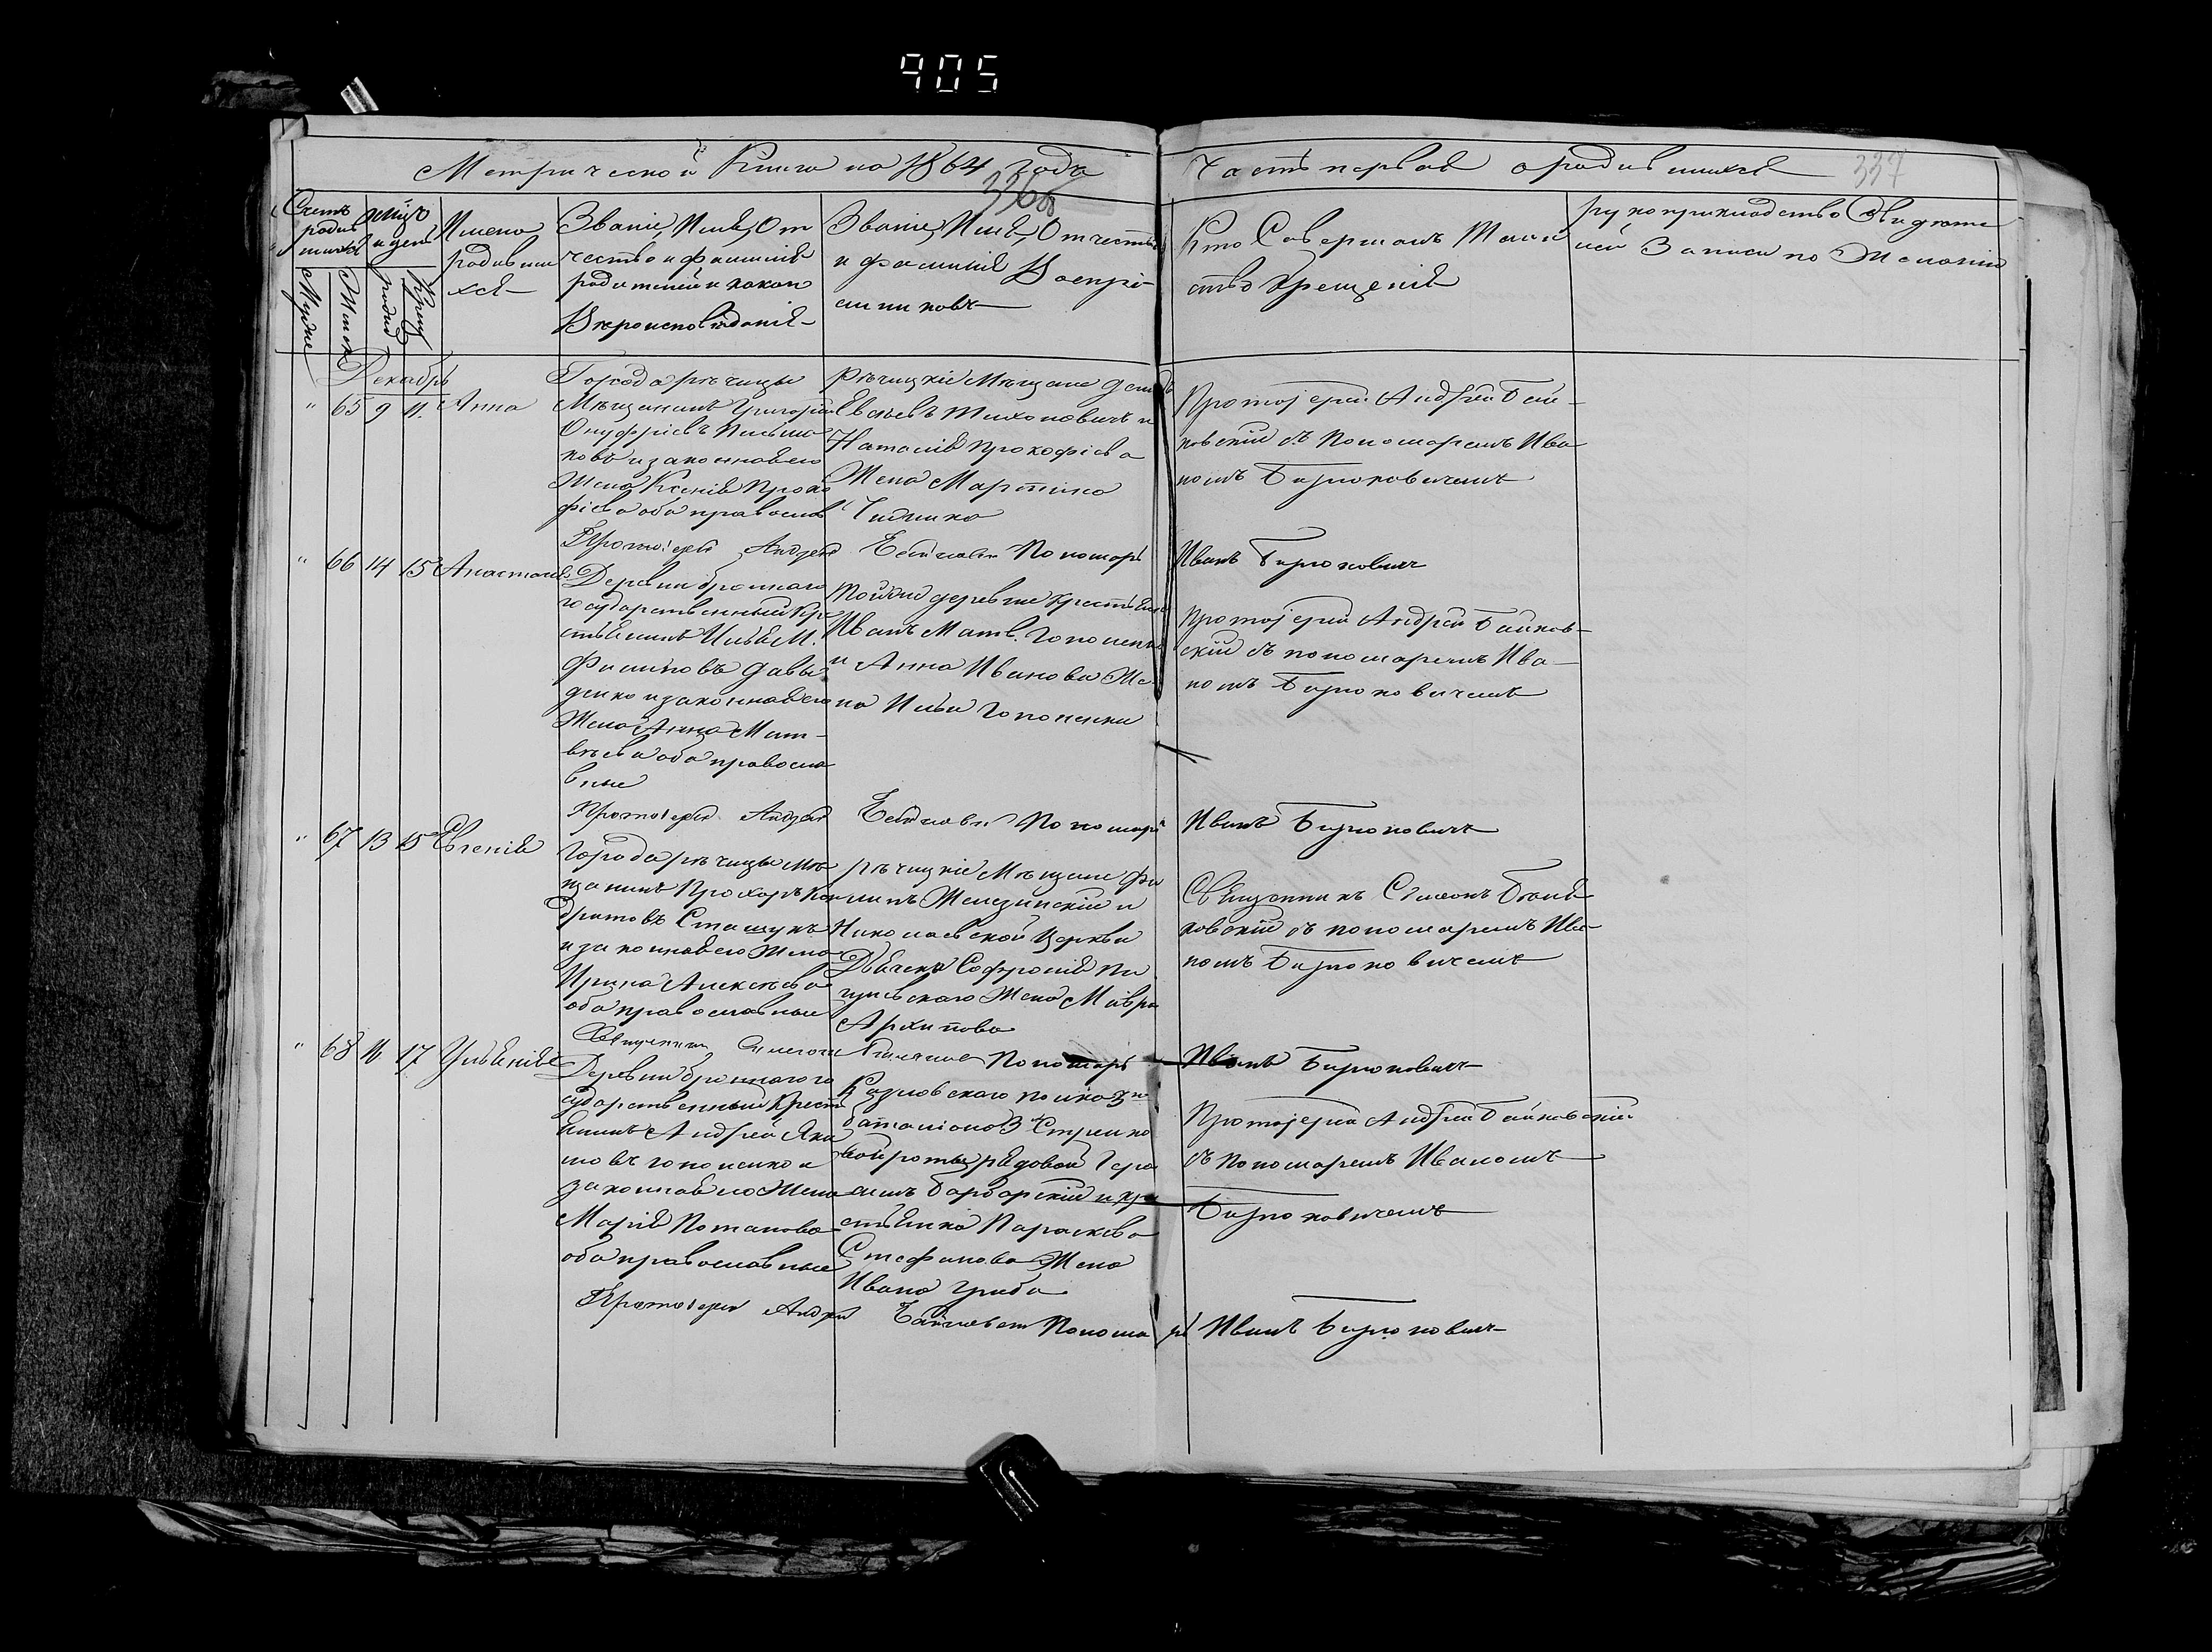 905
Метрической Книги на 1864 годъ
Часть первая о родившихся
337
Счетъ родившихся
Мужск
Женск
Мѣсяцъ и день
рожд
Крещ
Имена родивши хся
Званіе, Имя, От
чество и фамилія
родителей и какого
Вѣроисповѣданія
Званіе, Имя, Отчество
и фамилія Воспрі-
емниковъ
Кто Совершалъ Таин
ство Крещенія
рукоприкладство Свидѣте
лей Записи по Желанію
Декабрь
" 65 9 11. Анна
Города рѣчицы
Мѣщанинъ Григорій
Онуфріевъ
и законная его
Жена Ксенія Проко
фіева оба правосла
рѣчицкіе Мѣщане
Тихоновичъ и
Наталія Прокофіева
Жена Мартина
Протоіерей Андрей Бай-
ковскій съ пономаремъ Ива
номъ Бирюковичемъ
Протоіерей Андрей Байковскій Пономарь Иванъ Бирюковичъ
" 66 14 15 Анастасія
Деревни броннаго
государственный Кре
стьянинъ Илья М.
Филиповъ Давы
денко и законная его
Жена Анна Мат-
вѣева оба правосла
вные
той же деревни крестьяне
Иванъ Матв. Гопоненко
и Анна Иванова Же
на Ильи Гопоненки
Протоіерей Андрей Байков-
скій съ пономаремъ Ива-
номъ Бирюковичемъ
Протоіерей Андрей Байковскій Пономарь Иванъ Бирюковичъ
" 67 13 15 Евгенія
Города рѣчицы мѣ
щанинъ Прохоръ Кон
дратовъ Сташукъ
и законная его Жена
Ирина Алексѣева
оба православные
рѣчицкіе Мѣщане Фи
липъ Железинскій и
Николаевской Церкви
Дьячка Софронія Пи
гулевскаго Жена Мавра
Архипова
Священникъ Симеонъ
ковскій съ пономаремъ Ива-
номъ Бирюковичемъ
Священникъ Симеонъ Пономарь Иванъ Бирюковичъ
" 68 16 17 Ульянія
Деревни броннаго го
сударственный Крест
янинъ Андрей Яки
мовъ гопоненко и
законная его Жена
Марія Потапова
оба православные
Козловскаго полка 3го
баталіона 3й Стрелко
вой роты рядовой Гера
симъ Барбарскій и кре
стьянка Параскева
Стефанова Жена
Ивана Гриба
Протоіерей Андрей Байковскій
съ пономаремъ Иваномъ
Бирюковичемъ
Протоіерей Андрей Байковскій Пономарь Иванъ Бирюковичъ